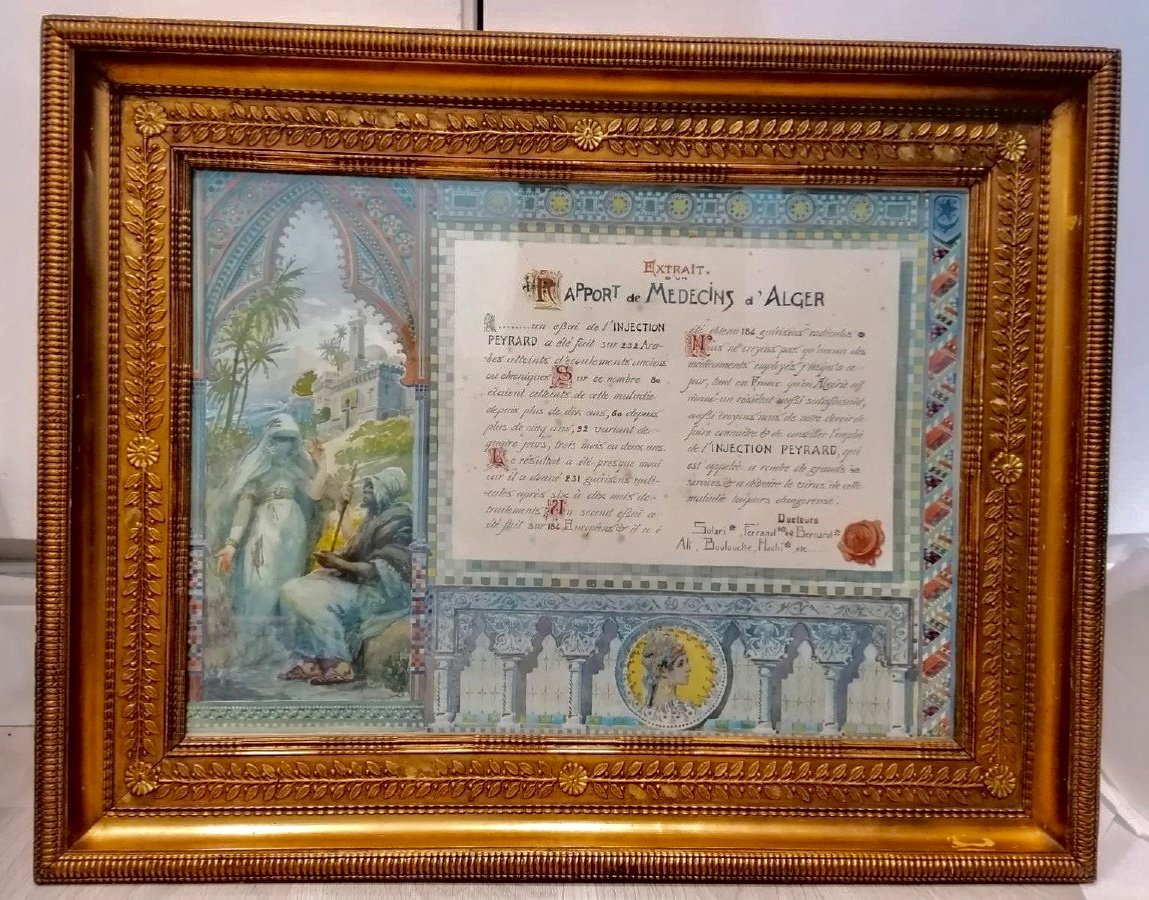 EXTRAIT.
D'UN
RAPPORT de MEDECINS d'ALGER
A........un essai de l'INJECTION
PEYRARD a été fait sur 232 Ara-
bes atteints d'écoulements anciens
ou chroniques Sur ce nombre 80
étaient atteints de cette maladie
depuis plus de dix ans, 60 depuis
plus de cinq ans, 92 variant de
quatre jours, trois mois ou deux ans.
Le résultat a été presque inouï
car il a donné 231 guérisons radi-
cales après six à dix mois de
traitements. Un second essai a
été fait sur 184 Européens & il a é
été obtenu 184 guérisons radicales
Nous ne croyons pas qu'aucun des
médicaments employés jusqu'à ce
jour, tant en France qu'en Algérie ait
donné un résultat aussi satisfaisant,
aussi croyons nous de notre devoir de
faire connaître & de conseiller l'emploi
de l'INJECTION PEYRARD, qui
est appelée à rendre de grands
services & à détruire le virus de cette
maladie toujours dangereuse.
Docteurs
Solari, Ferrand, Bernard
Ali, Boulouche, Hachi, etc......